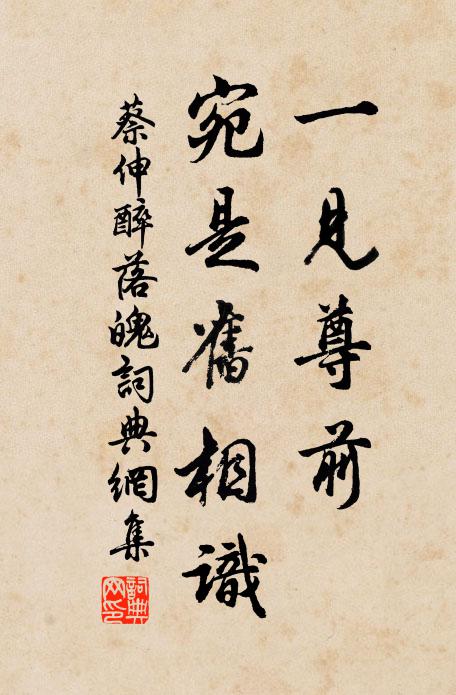 一見尊前
宛是舊相識
蔡伸醉落魄詞典網集
詞典
网印